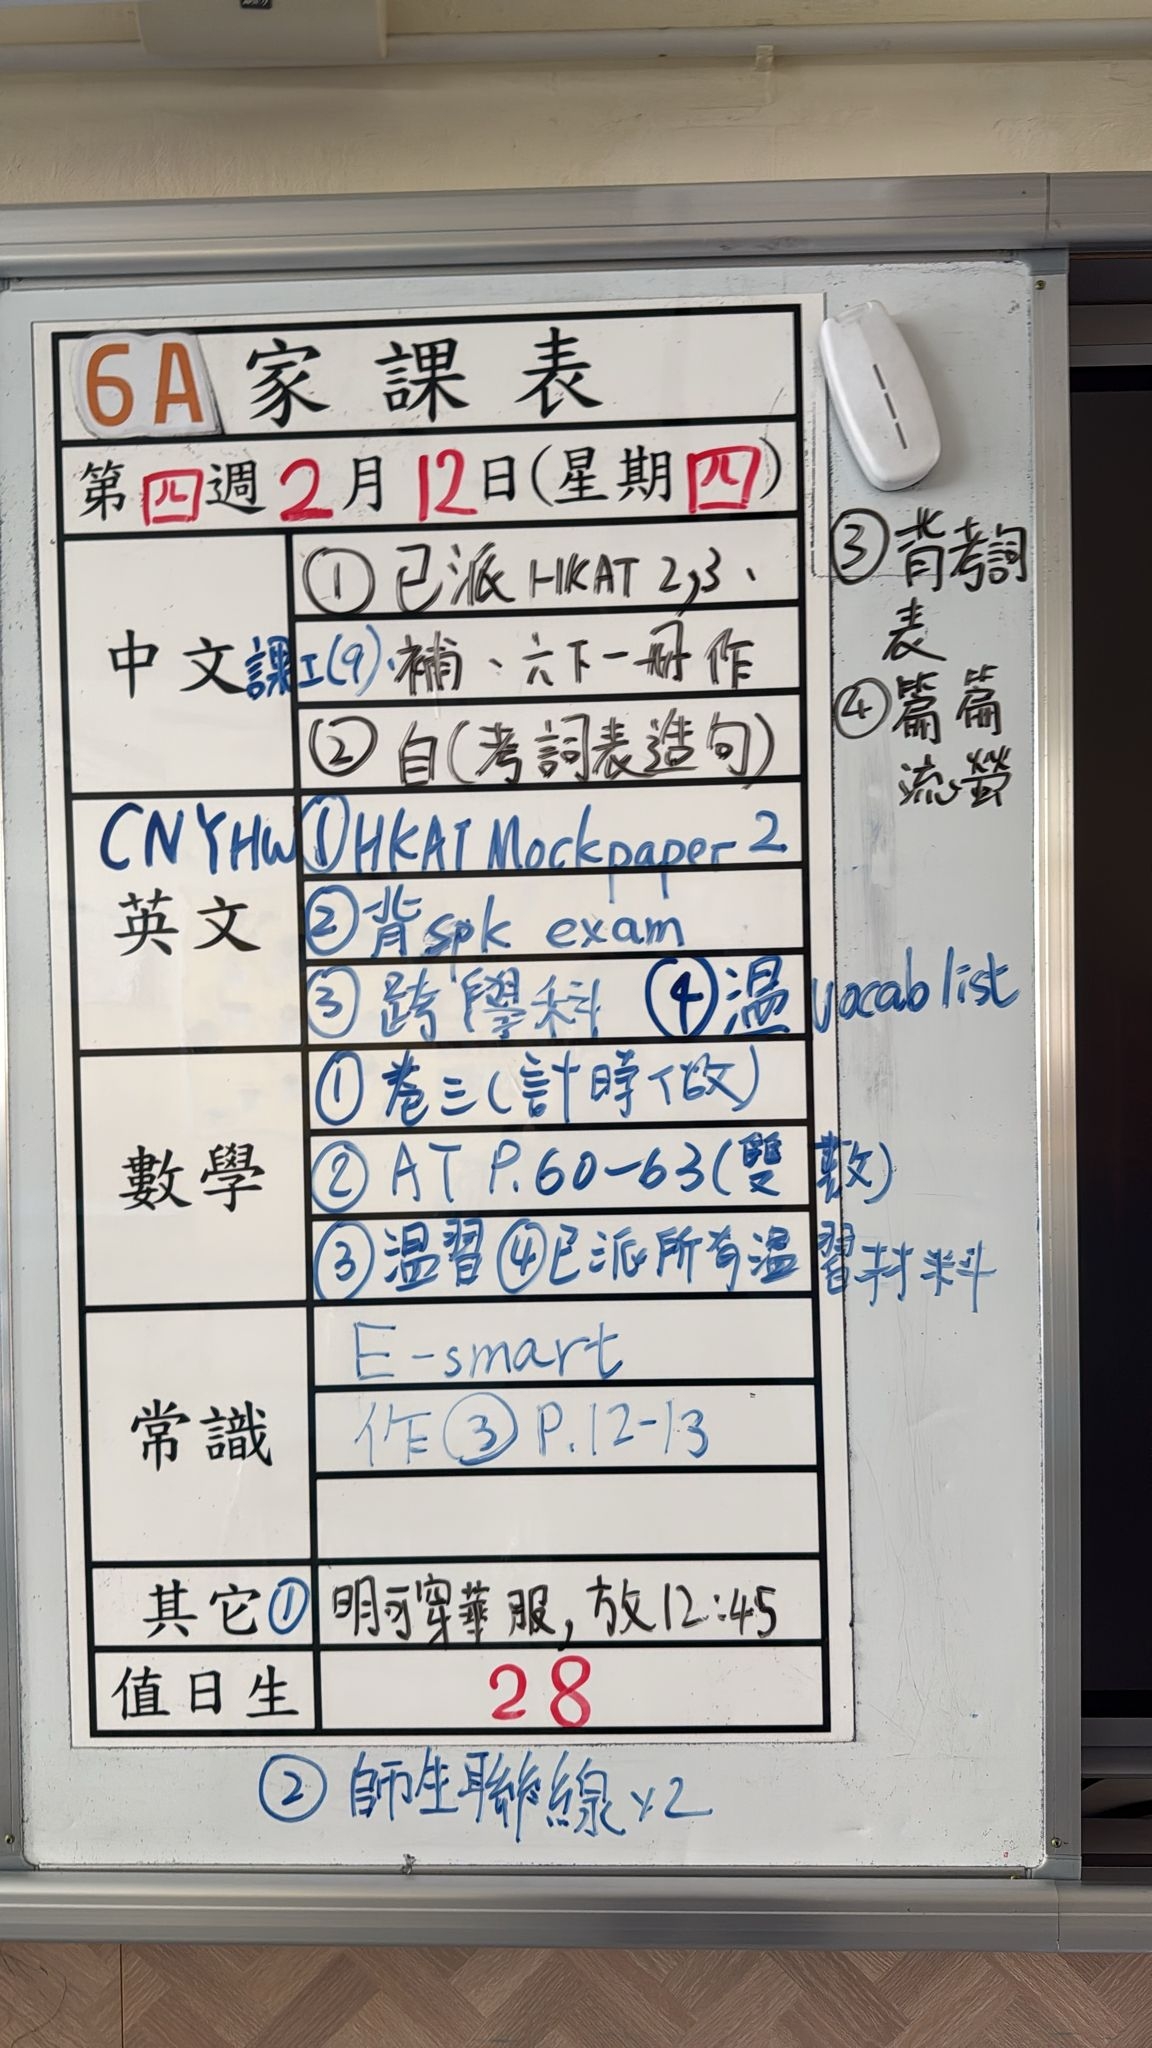 6A家課表
第四週2月12日(星期四)
中文
① 已派 HKAT 2,3、
課工(9)、補、六下一冊作
② 自(考詞表造句)
③ 背考詞
表
④ 篇篇
流螢
英文
CNYHW ① HKAT Mock paper 2
② 背 spk exam
③ 跨學科 ④ 溫 vocab list
數學
① 卷三(計時做)
② AT P.60-63(雙數)
③ 溫習 ④ 已派所有溫習材料
常識
E-smart
作③ P.12-13
其它① 明可穿華服,放12:45
值日生 28
② 師生聯線 x2